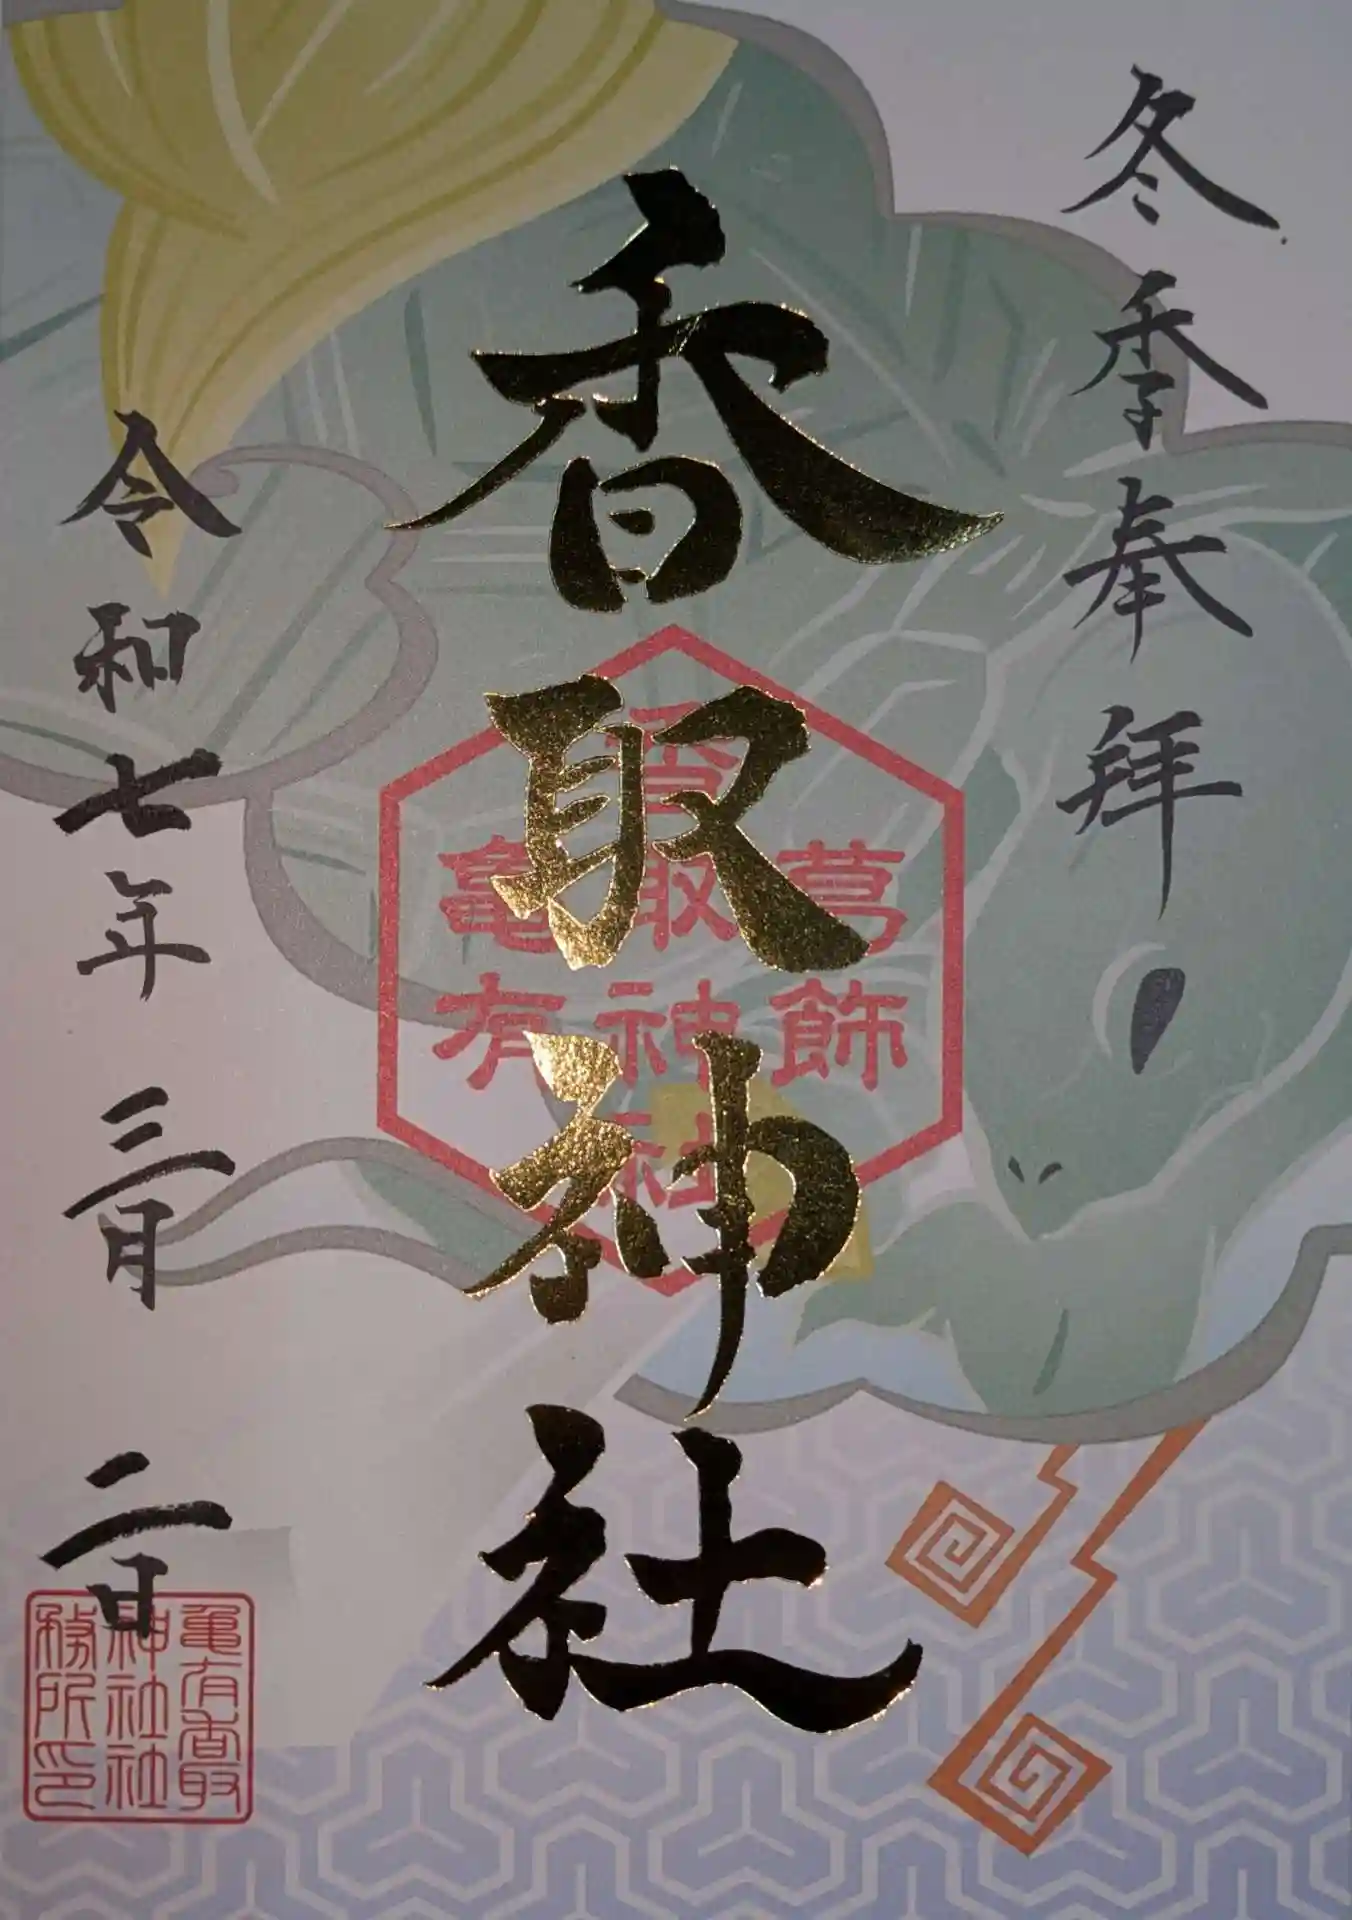 冬季奉拝
香取神社
葛飾
香取神社
亀有
令和七年三月二日
亀有香取
神社社
務所印